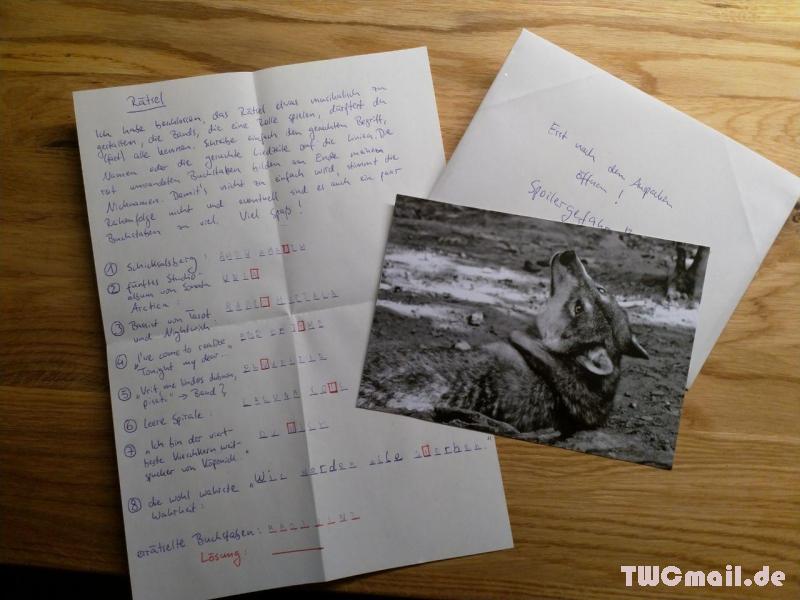 Rätsel
Ich habe beschlossen, das Rätsel etwas musikalisch zu
gestalten, die Bands, die eine Rolle spielen, dürftest du
(fast) alle kennen. Schreibe einfach den gesuchten Begriff,
Namen oder die gesuchte Liedzeile auf die Linien. Die
rot umrandeten Buchstaben bilden am Ende meinen
Nicknamen. Damit's nicht zu einfach wird, stimmt die
Reihenfolge nicht und eventuell sind es auch ein paar
Buchstaben zu viel. Viel Spaß!
① Schicksalsberg:
② fünftes Studio-
album von Sonata
Arctica: UNIA
③ Bassist von Tarot
und Nightwish:
④ "I've come to realize,
Tonight my dear..."
⑤
→ Band?
⑥ Leere Spirale:
⑦ "Ich bin der viert-
beste Kirschkernweit-
spucker von Köpenick."
⑧ die wohl wahrste "Wir werden alle sterben."
Wahrheit:
erätselte Buchstaben:
Lösung:
Erst nach dem Auspacken
öffnen!
Spoilergefahr
TWCmail.de